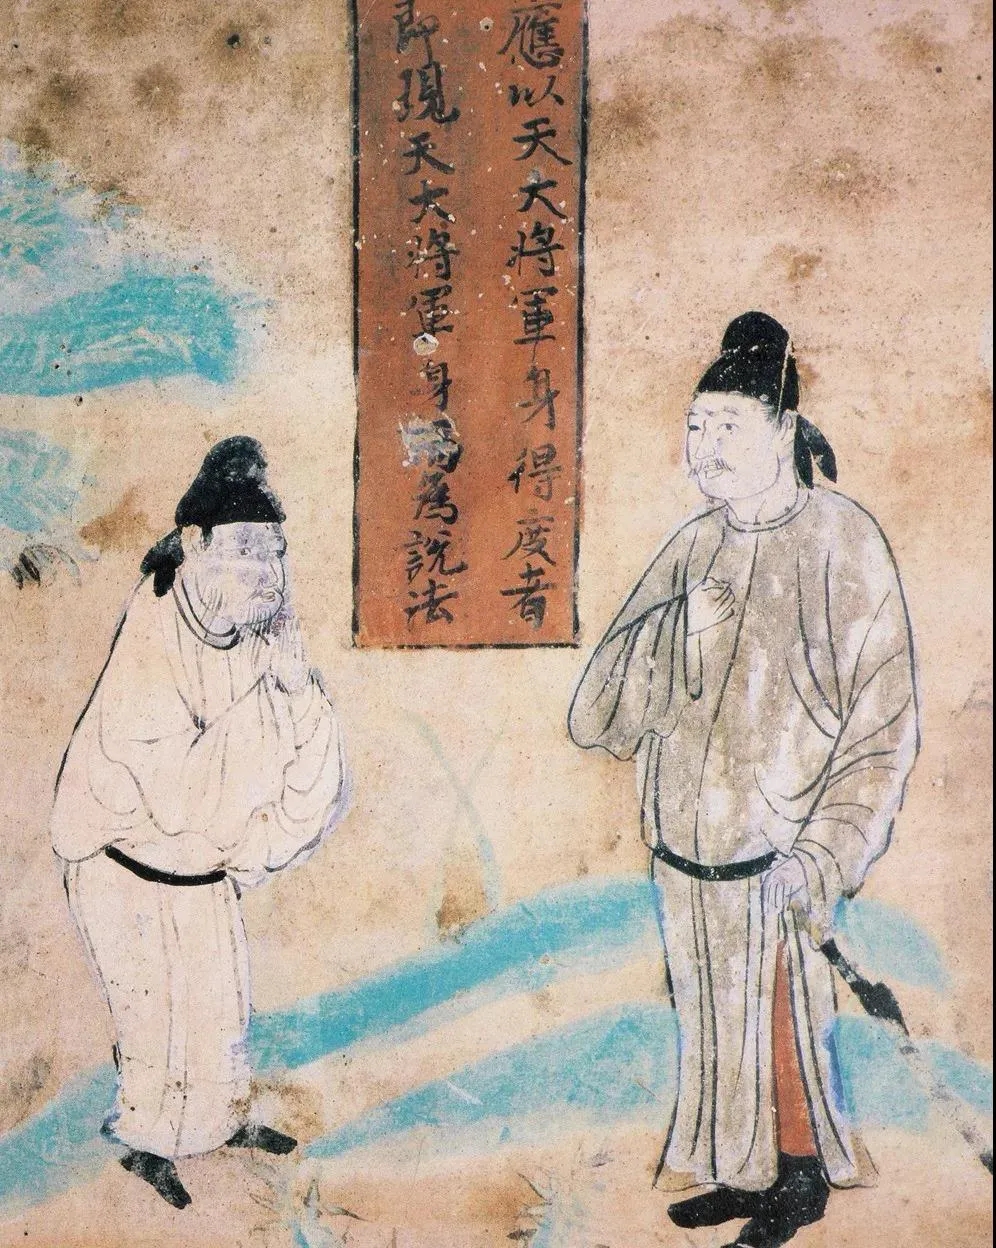 應以天大將軍身得度者
即現天大將軍身為說法